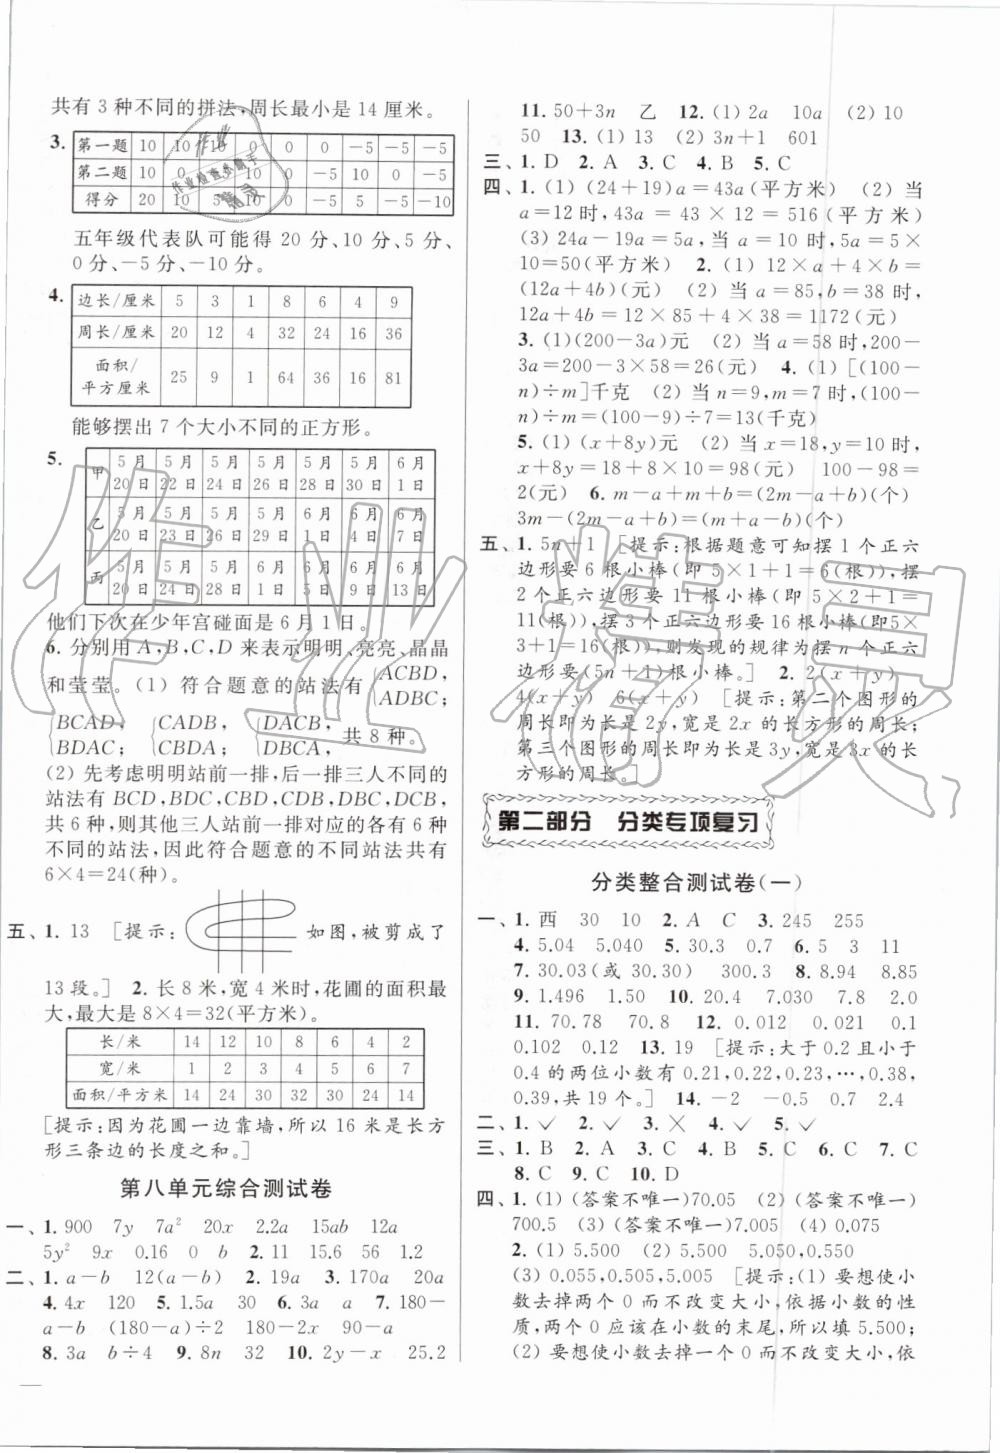 共有3种不同的拼法,周长最小是14厘米。
3. 第一题 10 10 10 0 0 0 -5 -5 -5
第二题 10 0 -5 10 0 -5 10 0 -5
得分 20 10 5 10 0 -5 5 -5 -10
五年级代表队可能得20分、10分、5分、
0分、-5分、-10分。
4. 边长/厘米 5 3 1 8 6 4 9
周长/厘米 20 12 4 32 24 16 36
面积/
平方厘米 25 9 1 64 36 16 81
能够摆出7个大小不同的正方形。
5. 甲 5月20日 5月22日 5月24日 5月26日 5月28日 5月30日 6月1日
乙 5月20日 5月23日 5月26日 5月29日 6月1日 6月4日 6月7日
丙 5月20日 5月24日 5月28日 6月1日 6月5日 6月9日 6月13日
他们下次在少年宫碰面是6月1日。
6. 分别用A,B,C,D来表示明明、亮亮、晶晶
和莹莹。(1) 符合题意的站法有{ACBD, ADBC;
{BCAD, BDAC; {CADB, CBDA; {DACB, DBCA, 共8种。
(2) 先考虑明明站前一排,后一排三人不同的
站法有BCD,BDC,CBD,CDB,DBC,DCB
共6种,则其他三人站前一排对应的各有6种
不同的站法,因此符合题意的不同站法共有
6×4=24(种)。
五、1. 13 [提示: 如图,被剪成了
13段。] 2. 长8米,宽4米时,花圃的面积最
大,最大是8×4=32(平方米)。
长/米 14 12 10 8 6 4 2
宽/米 1 2 3 4 5 6 7
面积/平方米 14 24 30 32 30 24 14
[提示:因为花圃一边靠墙,所以16米是长方
形三条边的长度之和。]
第八单元综合测试卷
一、1. 900 7y 7a² 20x 2.2a 15ab 12a
5y² 9x 0.16 0 b 2. 11 15.6 56 1.2
二、1. a-b 12(a-b) 2. 19a 3. 170a 20a
4. 4x 120 5. 1.5a 30 6. 3a a 7. 180-
a-b (180-a)÷2 180-2x 90-a
8. 3a b÷4 9. 8n 32 10. 2y-x 25.2
11. 50+3n 乙 12. (1) 2a 10a (2) 10
50 13. (1) 13 (2) 3n+1 601
三、1. D 2. A 3. C 4. B 5. C
四、1. (1) (24+19)a=43a(平方米) (2) 当
a=12时,43a=43×12=516(平方米)
(3) 24a-19a=5a,当a=10时,5a=5×
10=50(平方米) 2. (1) 12×a+4×b=
(12a+4b)(元) (2) 当a=85,b=38时,
12a+4b=12×85+4×38=1172(元)
3. (1)(200-3a)元 (2) 当a=58时,200-
3a=200-3×58=26(元) 4. (1) [(100-
n)÷m]千克 (2) 当n=9,m=7时,(100-
n)÷m=(100-9)÷7=13(千克)
5. (1) (x+8y)元 (2) 当x=18,y=10时,
x+8y=18+8×10=98(元) 100-98=
2(元) 6. m-a+m+b=(2m-a+b)(个)
3m-(2m-a+b)=(m+a-b)(个)
五、1. 5n+1 [提示:根据题意可知摆1个正六
边形要6根小棒(即5×1+1=6(根)),摆
2个正六边形要11根小棒(即5×2+1=
11(根)),摆3个正六边形要16根小棒(即5
×3+1=16(根)),则发现的规律为摆n个正六
边形要(5n+1)根小棒。] 2. 2(x+y)
4(x+y) 6(x+y) [提示:第二个图形的
周长即为长是2y,宽是2x的长方形的周长;
第三个图形的周长即为长是3y,宽是3x的长
方形的周长。]
第二部分 分类专项复习
分类整合测试卷(一)
一、1. 西 30 10 2. A C 3. 245 255
4. 5.04 5.040 5. 30.3 0.7 6. 5 3 11
7. 30.03(或30.30) 300.3 8. 8.94 8.85
9. 1.496 1.50 10. 20.4 7.030 7.8 2.0
11. 70.78 70.8 12. 0.012 0.021 0.1
0.102 0.12 13. 19 [提示:大于0.2且小于
0.4的两位小数有0.21,0.22,0.23,…,0.38,
0.39,共19个。] 14. -2 -0.5 0.7 2.4
二、1. ✓ 2. ✓ 3. ✗ 4. ✓ 5. ✓
三、1. B 2. A 3. B 4. B 5. C 6. C 7. C
8. C 9. C 10. D
四、1. (1) (答案不唯一)70.05 (2) (答案不唯一)
700.5 (3) (答案不唯一)7.005 (4) 0.075
2. (1) 5.500 (2) 5.050,0.550
(3) 0.055,0.505,5.005 [提示:(1) 要想使小
数去掉两个0而不改变大小,依据小数的性
质,两个0应该在小数的末尾,所以填5.500;
(2) 要想使小数去掉一个0而不改变大小,依
作业精灵